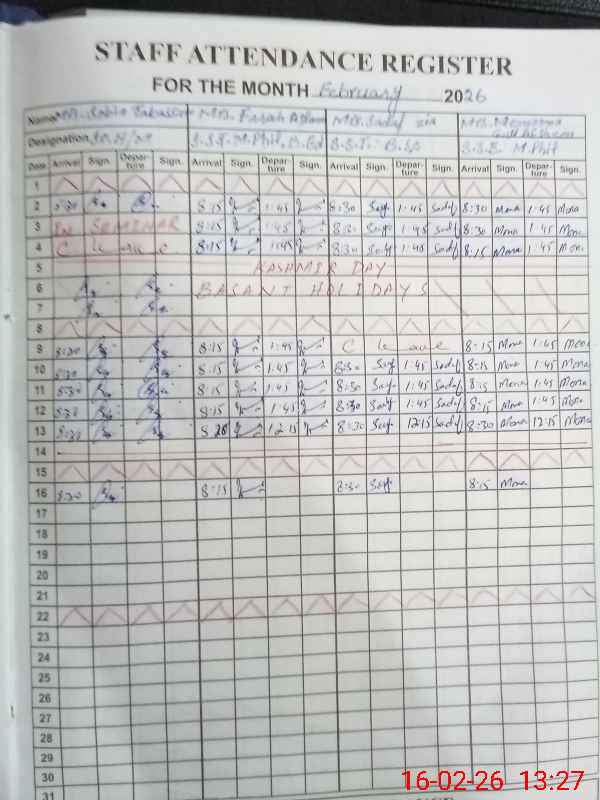 STAFF ATTENDANCE REGISTER
FOR THE MONTH February 2026
Name Mrs. Farah Aslam Mrs. Sadaf Zia Mrs.
Designation S.S.E M.Phil, B.Ed S.S.E. B.Sc S.S.E. M.Phil
Date Arrival Sign. Depar-ture Sign. Arrival Sign. Depar-ture Sign. Arrival Sign. Depar-ture Sign. Arrival Sign. Depar-ture Sign.
1
2 8:30 8:15 1:45 8:30 1:45 Sadaf 8:30 Mona 1:45 Mona
3 In SEMINAR 8:15 1:45 8:30 1:45 Sadaf 8:30 Mona 1:45 Mona
4 C leave 8:15 1:45 8:30 1:45 Sadaf 8:15 Mona 1:45 Mona
5 KASHMIR DAY
6 BASANT HOLIDAYS
7
8
9 8:20 8:15 1:45 C leave 8:15 Mona 1:45 Mona
10 8:20 8:15 1:45 8:30 1:45 Sadaf 8:15 Mona 1:45 Mona
11 8:30 8:15 1:45 8:30 1:45 Sadaf 8:15 Mona 1:45 Mona
12 8:20 8:15 1:45 8:30 1:45 Sadaf 8:15 Mona 1:45 Mona
13 8:20 12:15 8:30 12:15 Sadaf 8:30 Mona 12:15 Mona
14
15
16 8:20 8:15 8:30 8:15 Mona
17
18
19
20
21
22
23
24
25
26
27
28
29
30
31
16-02-26 13:27